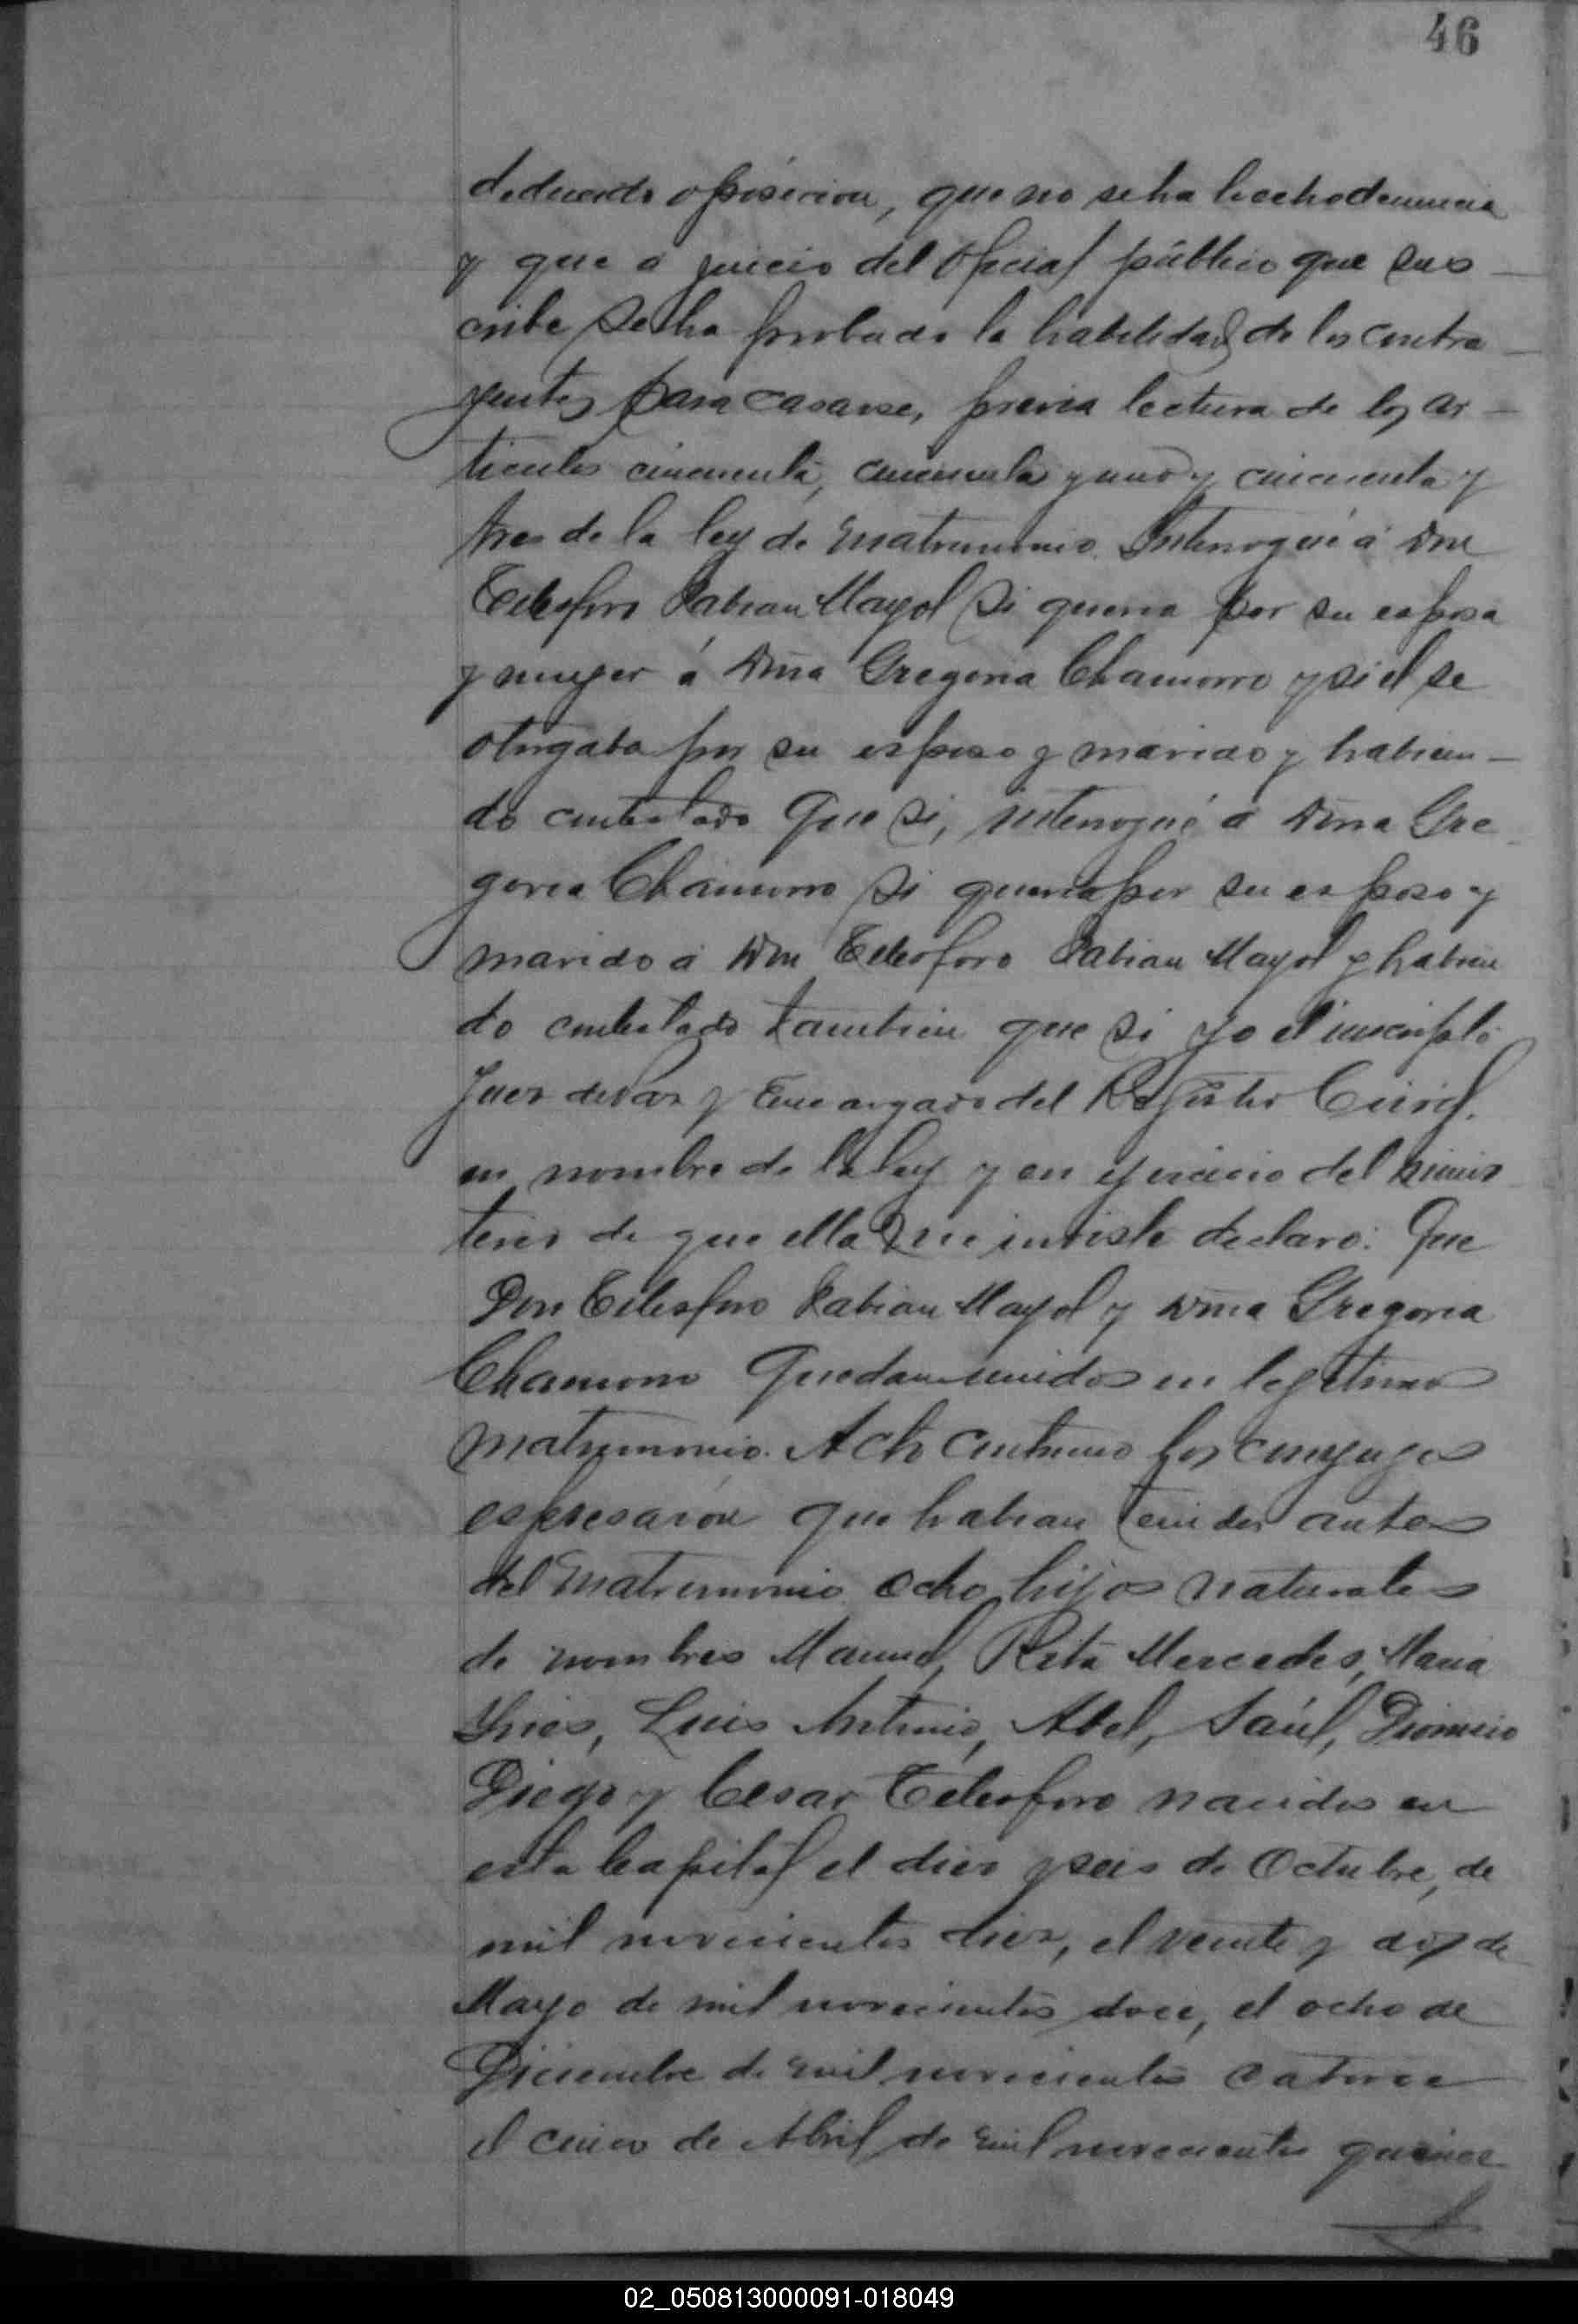 46
deducido oposicion, que no se ha hecho denuncia
y que á juicio del Oficial público que sus
cribe se ha probado la habilidad de los contra
yentes para casarse, previa lectura de los ar
ticulos cincuenta, cincuenta y uno y cincuenta y
tres de la ley de matrimonio. Interrogué á Don
Telesforo Fabian Mayol si queria por su esposa
y muger á Doña Gregoria Chamorro y si el se
otorgaba por su esposo y marido y habien
do contestado que si, interrogué á Doña Gre
goria Chamorro si queria por su esposo y
marido á Don Telesforo Fabian Mayol y habien
do contestado tambien que si yo el inscripto
Juez de Paz y Encargado del Registro Civil.
en nombre de la ley y en ejercicio del minis
terio de que ella me inviste declaro: Que
Don Telesforo Fabian Mayol y Doña Gregoria
Chamorro quedan unidos en legitimo
matrimonio. Acto continuo los conyuges
espresaron que habian tenidos antes
del matrimonio ocho hijos naturales
de nombres Manuel, Rita Mercedes, Maria
Ynes, Luis Antonio, Abel, Saúl, Dionicio
Diego y Cesar Telesforo nacidos en
esta Capital el dies y seis de Octubre, de
mil novecientos diez, el veinte y dos de
Mayo de mil novecientos doce, el ocho de
Diciembre de mil novecientos catorce
el cinco de Abril de mil novecientos quince
02_050813000091-018049